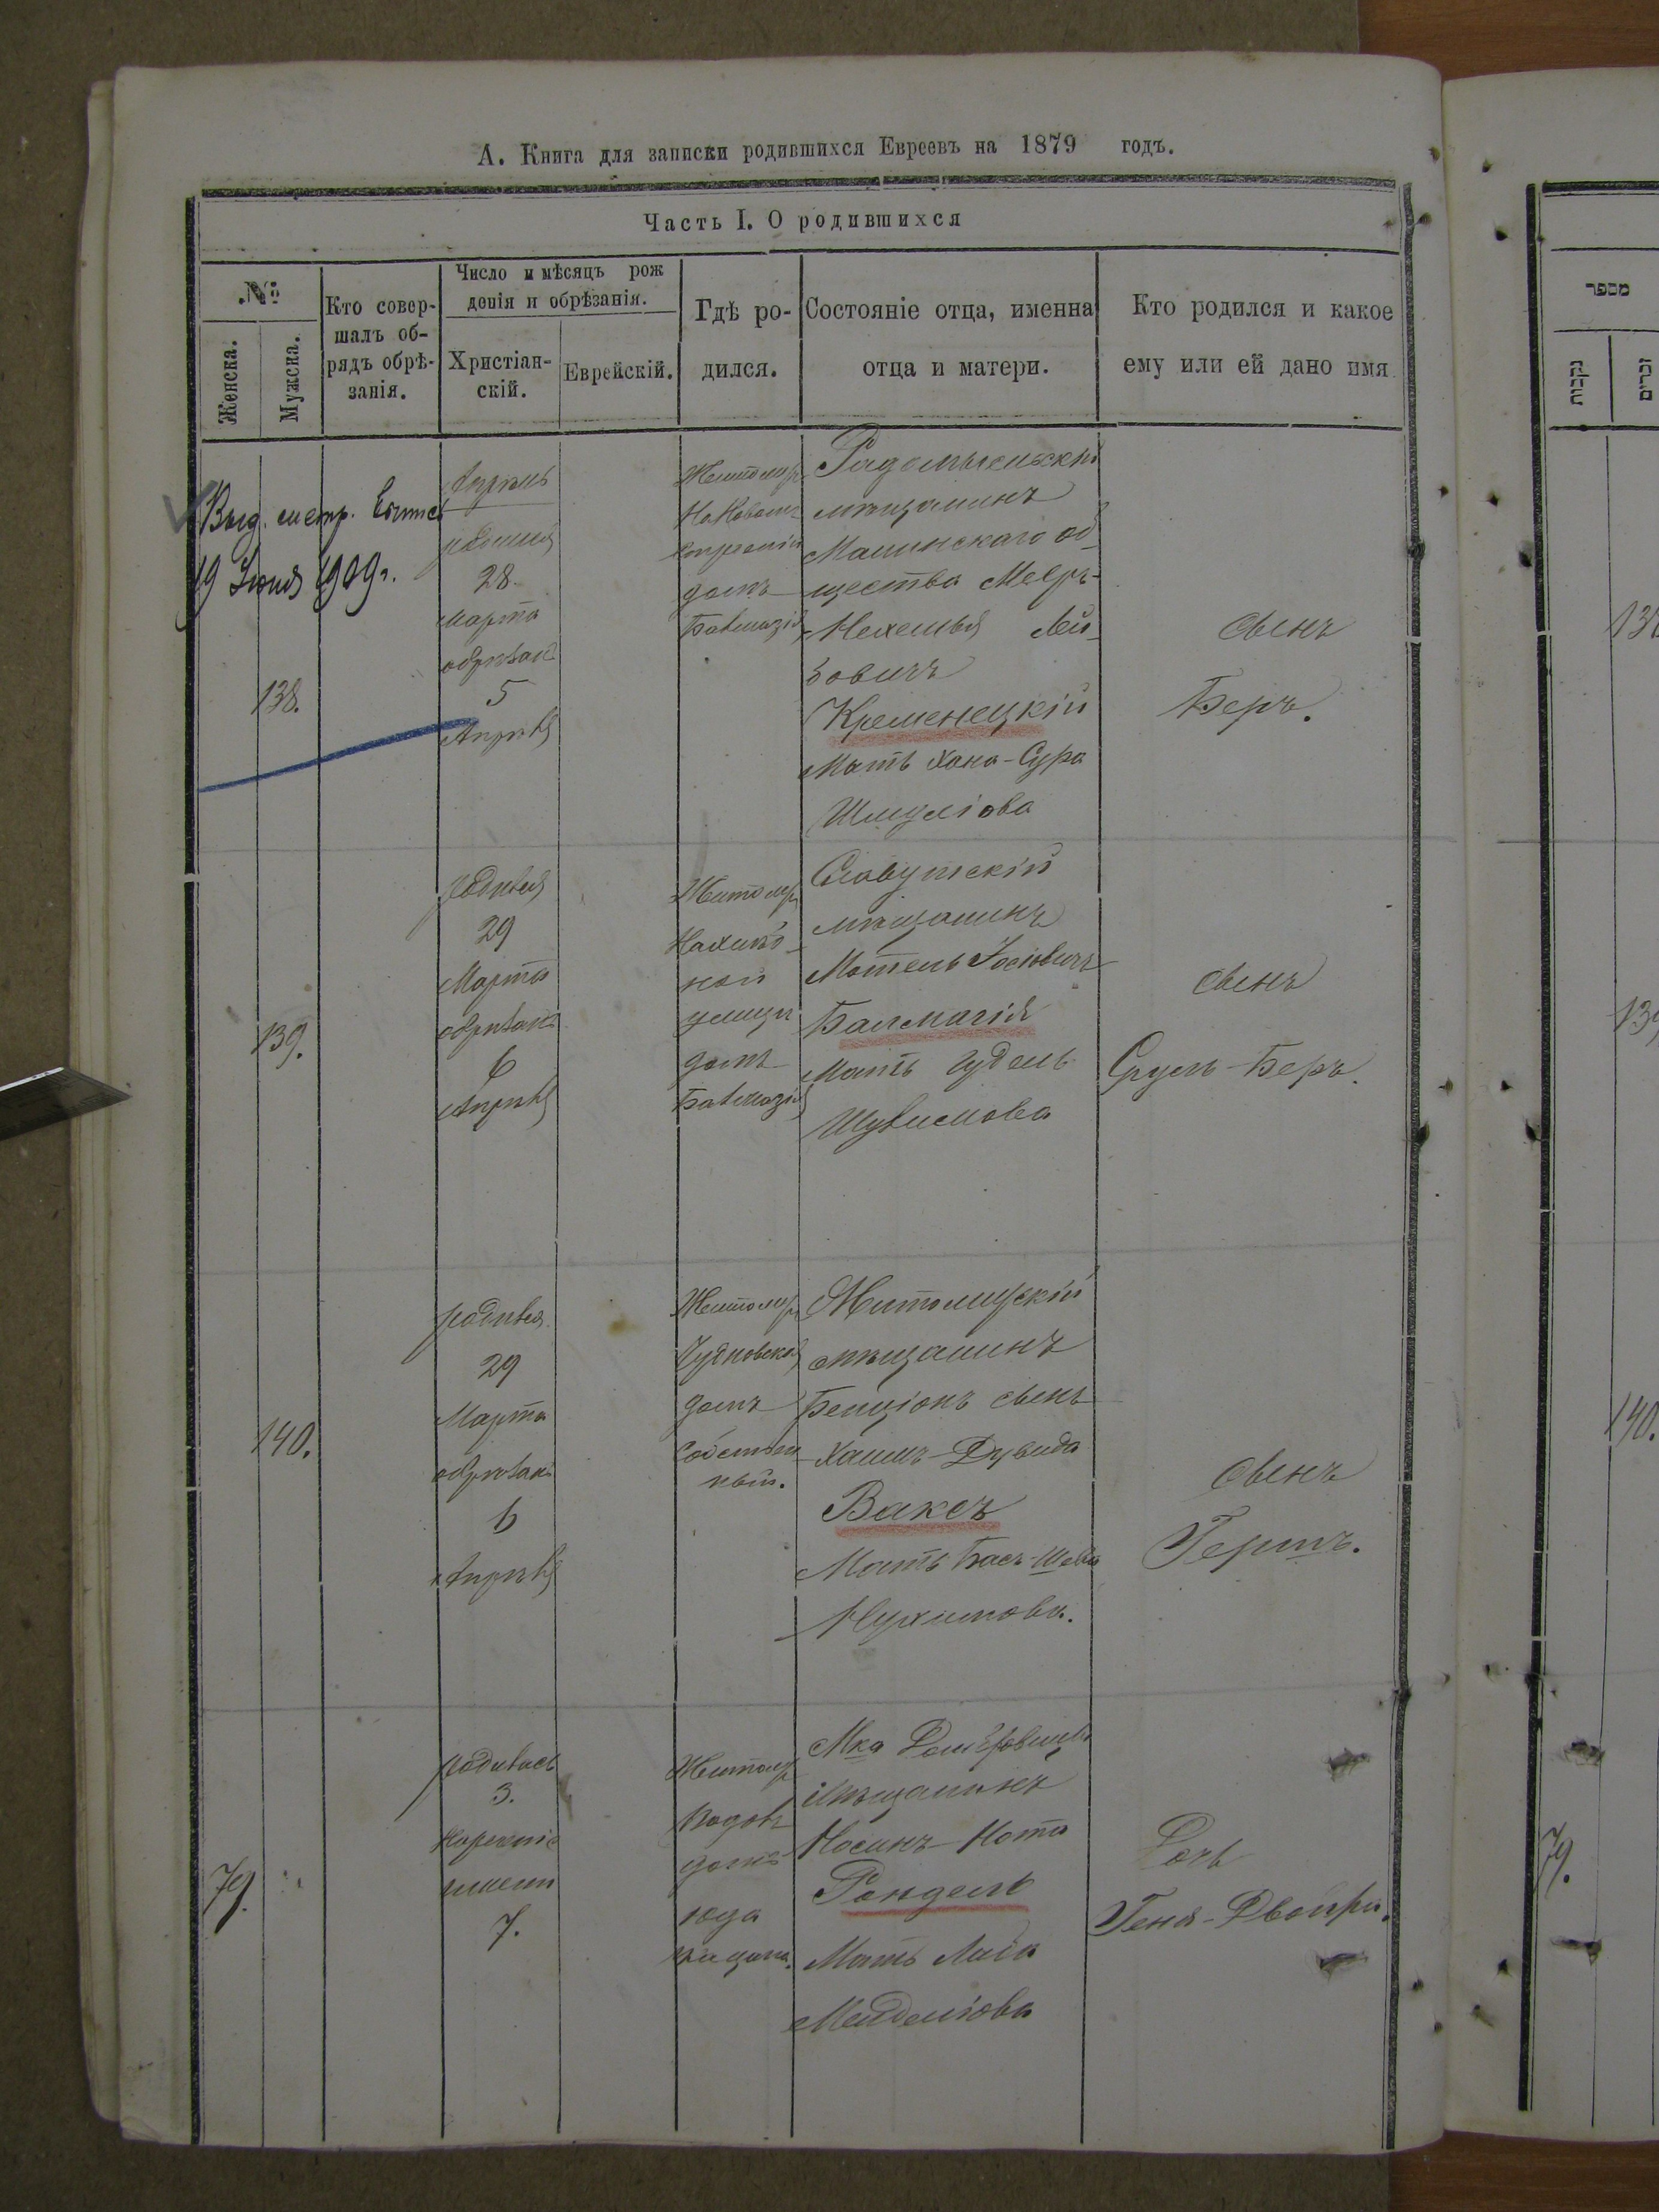 А. Книга для записки родившихся Евреевъ на 1879 годъ.
Часть I. О родившихся
№
Женска.
Мужска.
Кто совер-
шалъ об-
рядъ обрѣ-
занія.
Число и мѣсяцъ рож
денія и обрѣзанія.
Христіан-
скій.
Еврейскій.
Гдѣ ро-
дился.
Состояніе отца, именна
отца и матери.
Кто родился и какое
ему или ей дано имя
Выд. метр.
19 Іюня 1909 г.
138.
28
марта
обрѣзанъ
5
Апрѣля
Житомир
домъ
Радомысльскій
мѣщанинъ
Малинскаго об
щества Мееръ-
Нехемья Лей
бовичъ
Кременецкій
Мать Хана-Сура
Шмуліова
сынъ
Беръ.
139.
родился
29
Марта
обрѣзанъ
6
Апрѣля
Житомир
ной
улицы
домъ
Славутскій
мѣщанинъ
Мотель Іосіовичъ
Балмагія
Мать Гудель
сынъ
Сруль-Беръ.
140.
родился
29
Марта
обрѣзанъ
6
Апрѣля
Житомир
Чудновская
домъ
Собствен
ный.
Житомирскій
мѣщанинъ
Бенціонъ сынъ
Хаимъ-Дувида
Ваксъ
Мать Бася-Шева
Нухимова.
сынъ
Гершъ.
79.
родилась
3.
наречение
имени
7.
Житомир
домъ
Мка
мѣщанинъ
Носинъ-Нота
Рондель
Мать
Менделіова
Дочь
Геня-Двойра.
מספר
נקבות
זכרים
138
139
140.
79.